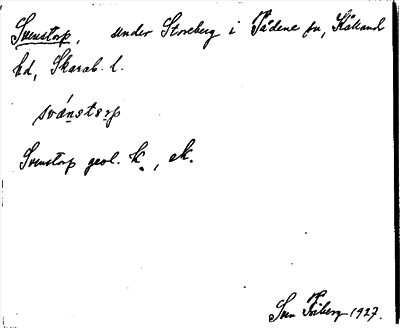 Svenstorp, under Storeberg i Tådene sn, Kålland
hd, Skarab. l.
svä́nstorp
Svenstorp geol. k., ek.
Sven Friberg 1927.